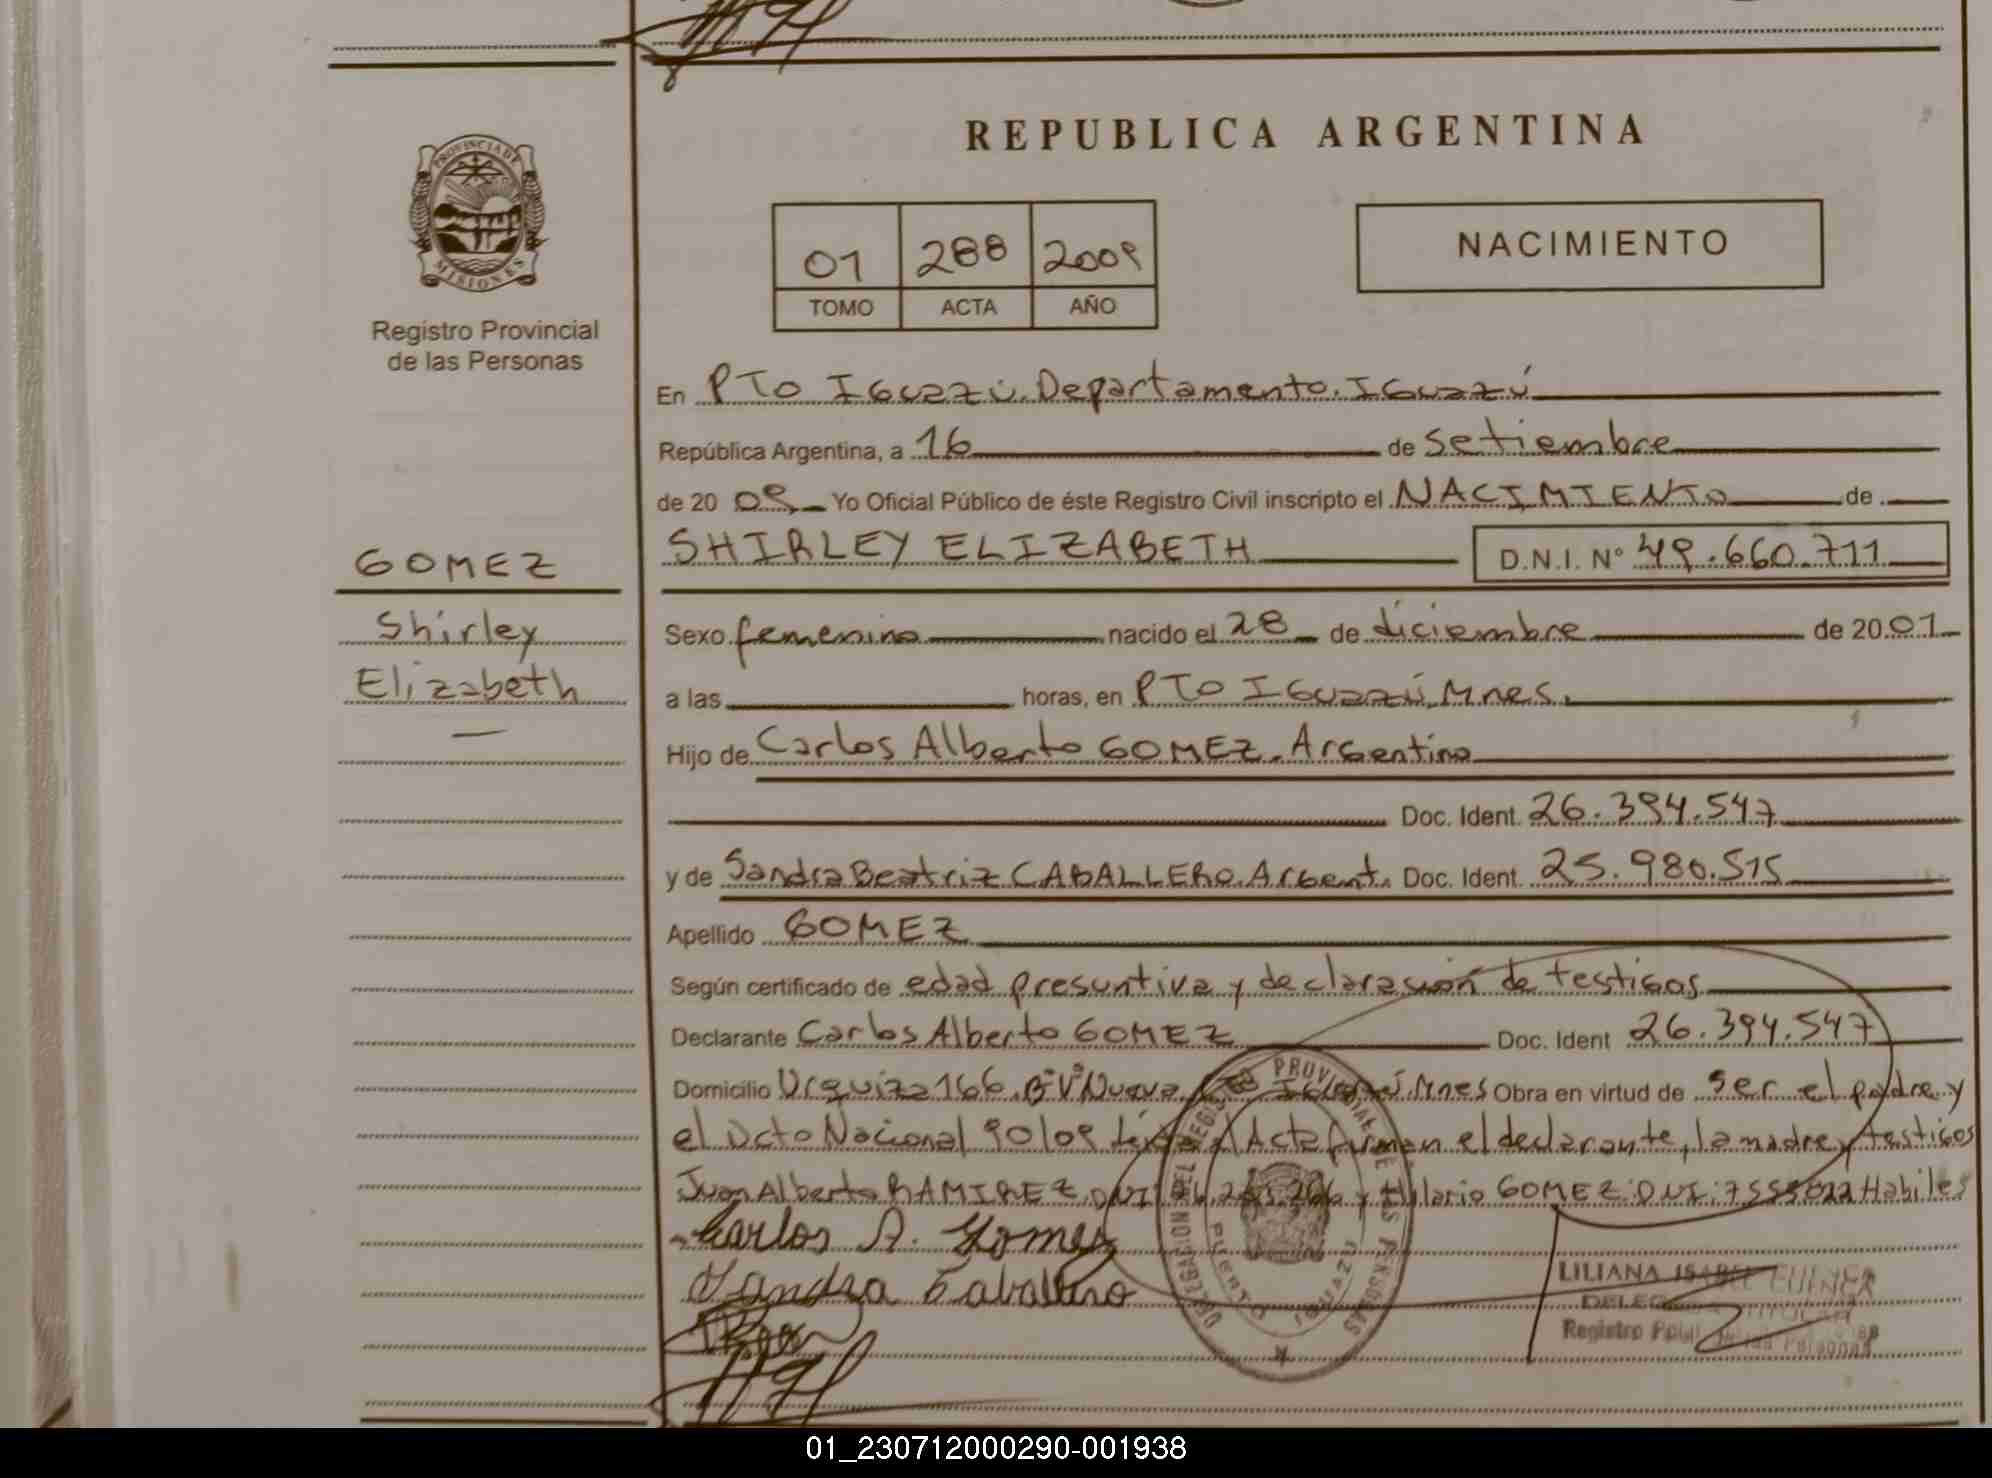 REPUBLICA ARGENTINA
PROVINCIA DE
MISIONES
Registro Provincial
de las Personas
01 288 2009
TOMO ACTA AÑO
NACIMIENTO
En PTO IGUAZÚ. Departamento. IGUAZÚ
República Argentina, a 16 de Setiembre
de 20 09 Yo Oficial Público de éste Registro Civil inscripto el NACIMIENTO de
GOMEZ
Shirley
Elizabeth
SHIRLEY ELIZABETH D.N.I. Nº 49.660.711
Sexo femenino nacido el 28 de diciembre de 20 01
a las horas, en PTO IGUAZÚ, Mnes.
Hijo de Carlos Alberto GOMEZ. Argentino
Doc. Ident. 26.394.547
y de Sandra Beatriz CABALLERO. Argent. Doc. Ident. 25.980.515
Apellido GOMEZ
Según certificado de edad presuntiva y declaración de testigos
Declarante Carlos Alberto GOMEZ Doc. Ident 26.394.547
Domicilio Urquiza 166. Bº Vª Nueva Mnes Obra en virtud de ser el padre y
el Dcto Nacional 90/09 Acta firman el declarante, la madre y testigos
Juan Alberto RAMIREZ. DNI y Hilario GOMEZ DNI: Habiles
Carlos A. Gomez
Sandra Caballero
DELEGACION DEL REGISTRO PROVINCIAL DE LAS PERSONAS
PUERTO IGUAZU
LILIANA ISABEL
Registro
01_230712000290-001938